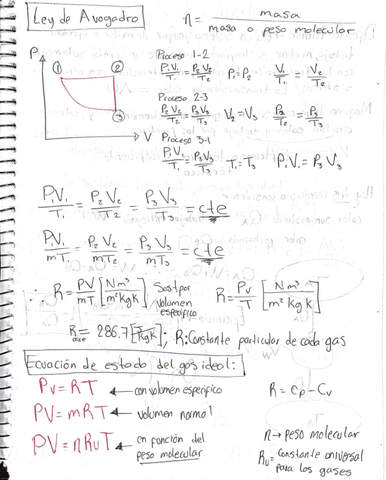 Ley de Avogadro
n = masa / masa o peso molecular
P
① ②
③
V
Proceso 1-2
P₁V₁/T₁ = P₂V₂/T₂ P₁=P₂ V₁/T₁ = V₂/T₂
Proceso 2-3
P₂V₂/T₂ = P₃V₃/T₃ V₂=V₃ P₂/T₂ = P₃/T₃
Proceso 3-1
P₁V₁/T₁ = P₃V₃/T₃ T₁=T₃ P₁V₁ = P₃V₃
P₁V₁/T₁ = P₂V₂/T₂ = P₃V₃/T₃ = cte
P₁V₁/mT₁ = P₂V₂/mT₂ = P₃V₃/mT₃ = cte
∴ R = PV/mT [Nm³/m²kgK] Sust por volumen específico R = Pv/T [Nm³/m²kgK]
R = 286.7 [J/kgK]; R: Constante particular de cada gas
Ecuación de estado del gas ideal:
Pv = RT ← con volumen especifico R = Cp - Cv
PV = mRT ← volumen normal
PV = nRuT ← en función del peso molecular
n → peso molecular
Ru = Constante universal
para los gases